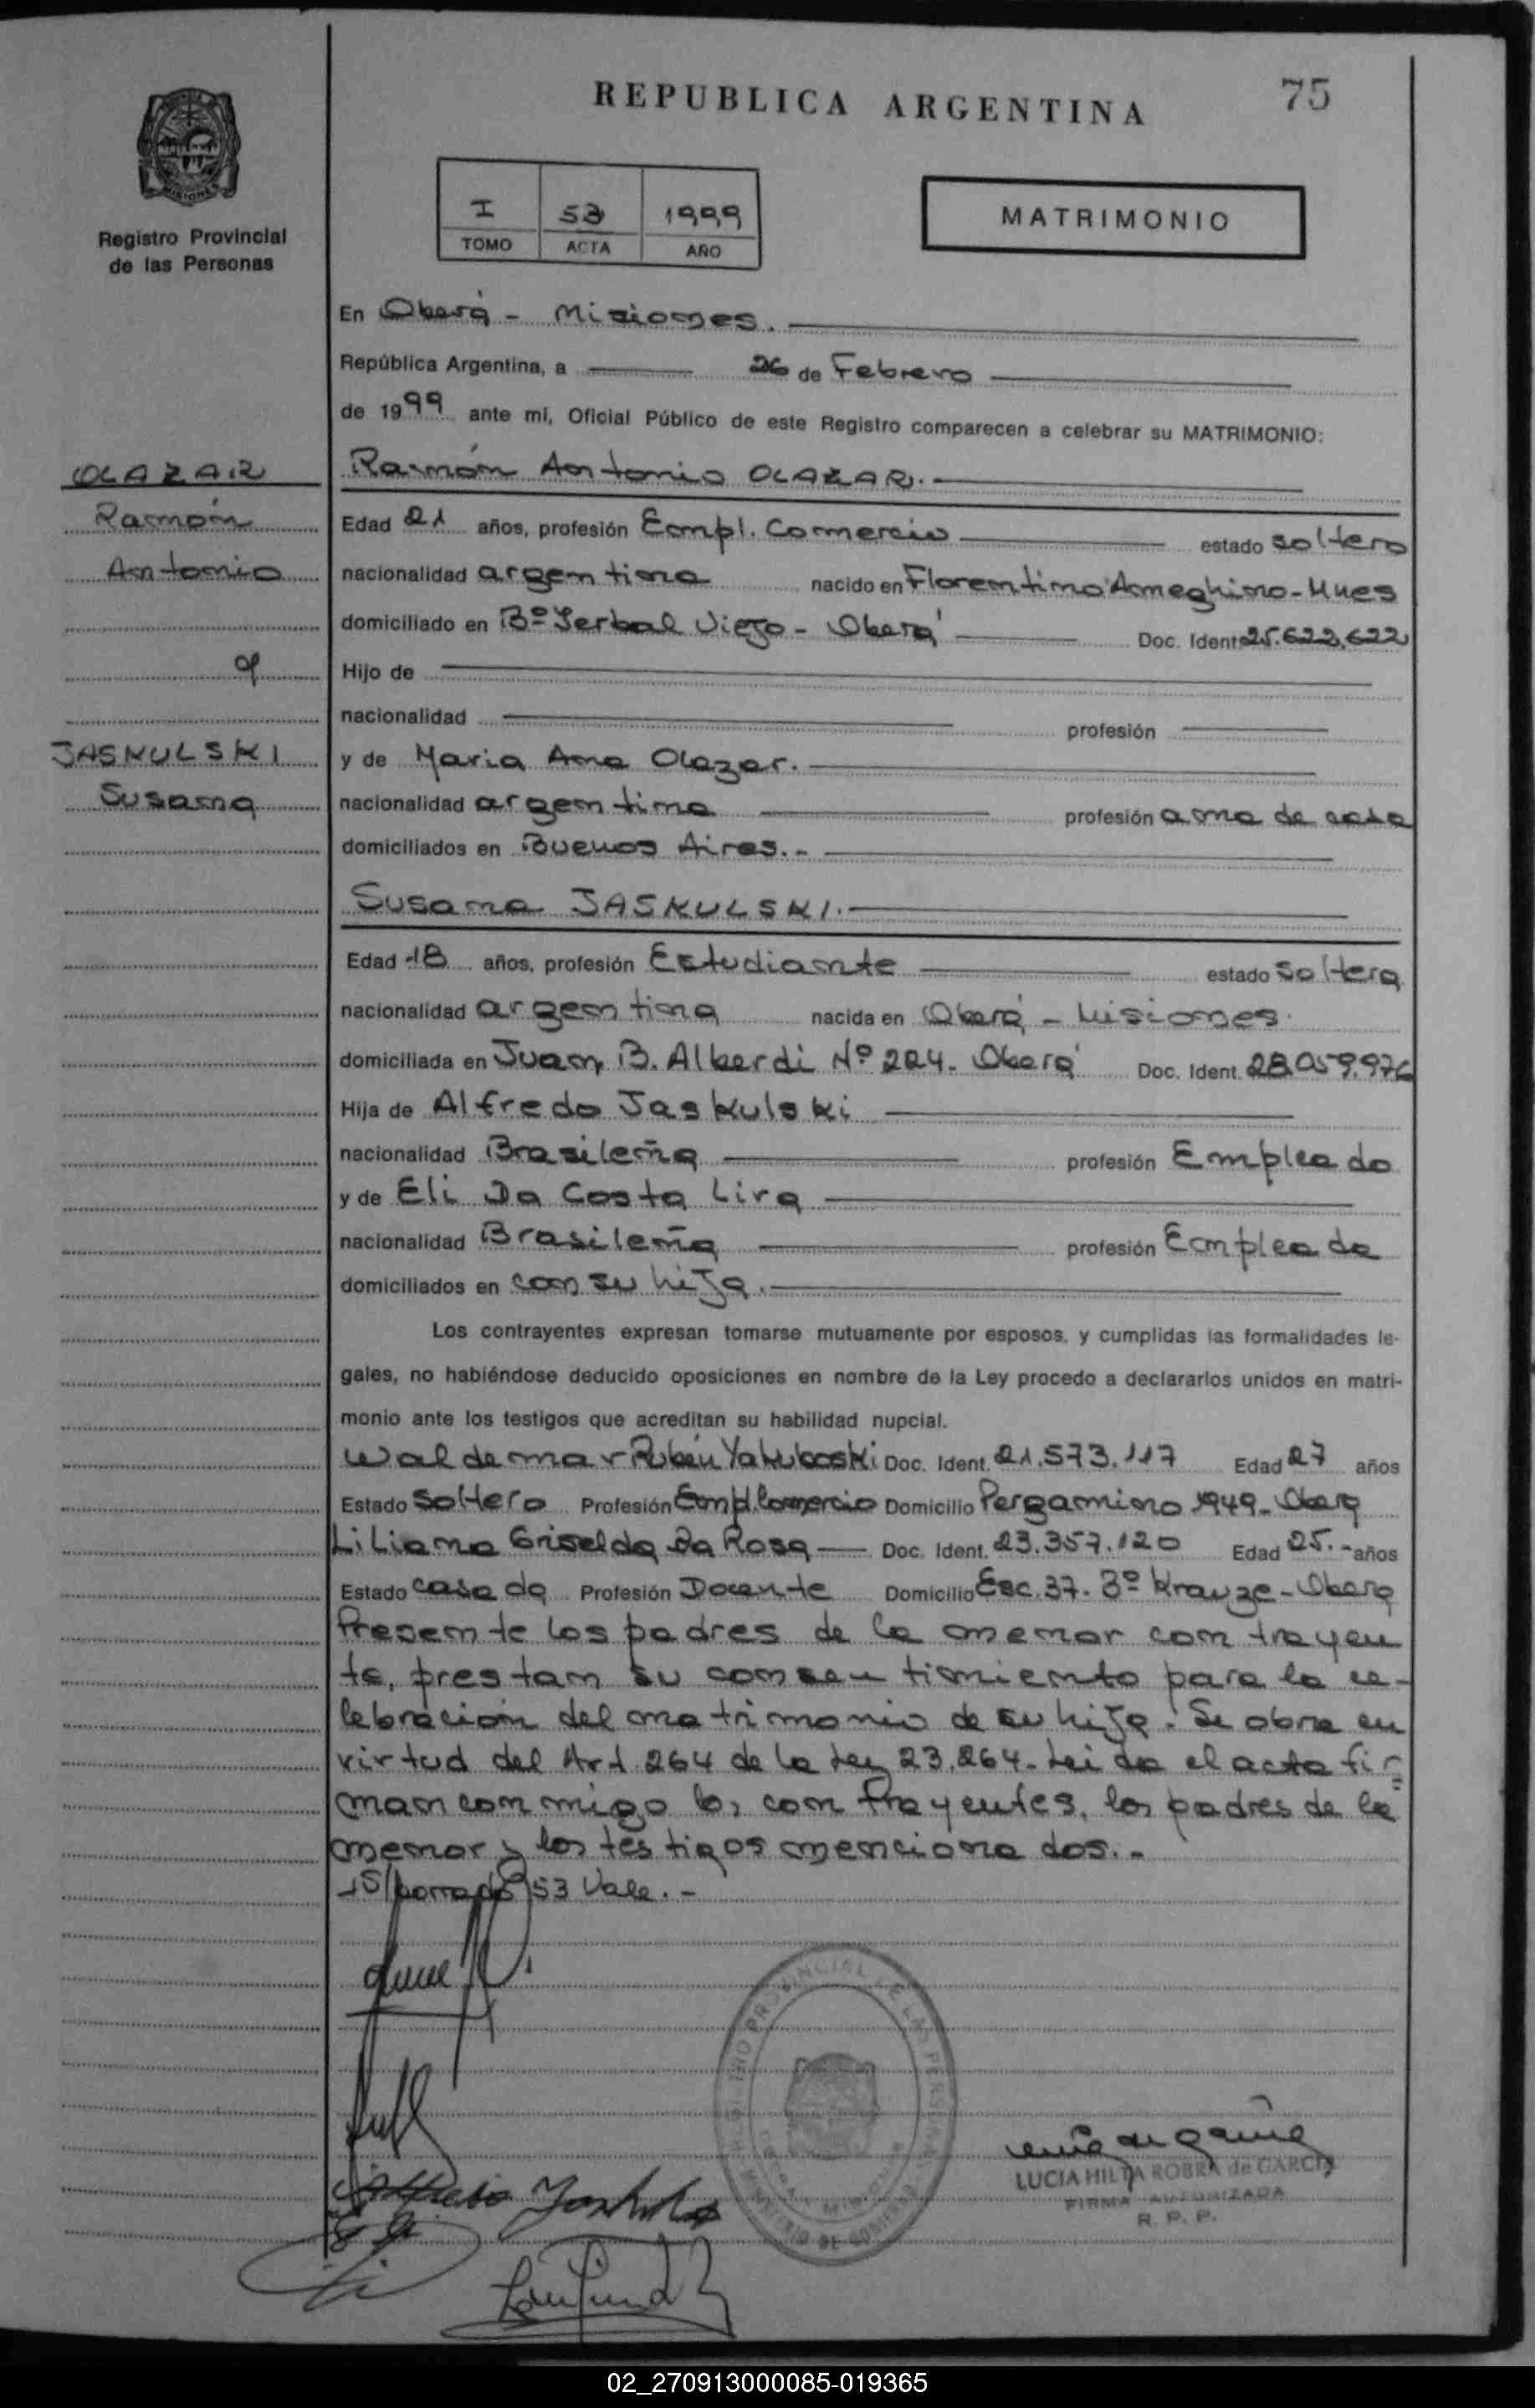 REPUBLICA ARGENTINA
75
Registro Provincial
de las Personas
I 53 1999
TOMO ACTA AÑO
MATRIMONIO
En Oberá - Misiones.
República Argentina, a 26 de Febrero
de 1999 ante mí, Oficial Público de este Registro comparecen a celebrar su MATRIMONIO:
OLAZAR
Ramón
Antonio
JASKULSKI
Susana
Ramón Antonio OLAZAR.
Edad 21 años, profesión Empl. Comercio estado soltero
nacionalidad argentina nacido en Florentino Ameghino - Mnes
domiciliado en Bº Yerbal Viejo - Oberá Doc. Ident. 25.622.622
Hijo de
nacionalidad profesión
y de Maria Ana Olazar.
nacionalidad argentina profesión ama de casa
domiciliados en Buenos Aires.-
Susana JASKULSKI.
Edad 18 años, profesión Estudiante estado soltera
nacionalidad argentina nacida en Oberá - Misiones.
domiciliada en Juan B. Alberdi Nº 224. Oberá Doc. Ident. 28.059.976
Hija de Alfredo Jaskulski
nacionalidad Brasileña profesión Empleado
y de Eli Da Costa Lira
nacionalidad Brasileña profesión Empleada
domiciliados en con su hija.
Los contrayentes expresan tomarse mutuamente por esposos, y cumplidas las formalidades le-
gales, no habiéndose deducido oposiciones en nombre de la Ley procedo a declararlos unidos en matri-
monio ante los testigos que acreditan su habilidad nupcial.
Waldemar Rubén Yakuboski Doc. Ident. 21.573.117 Edad 27 años
Estado Soltero Profesión Empl. Comercio Domicilio Pergamino 1949 - Oberá
Liliana Griselda Da Rosa Doc. Ident. 23.357.120 Edad 25.- años
Estado casada Profesión Docente Domicilio Esc. 37. Bº Krauze - Oberá
Presente los padres de la menor contrayen
te, prestan su consentimiento para la ce-
lebración del matrimonio de su hija. Se obra en
virtud del Art. 264 de la Ley 23.264. Leida el acta fir-
man conmigo los contrayentes, los padres de la
menor y los testigos mencionados.-
S/borrado 53 Vale.-
LUCIA HILDA ROBRA de GARCIA
FIRMA AUTORIZADA
R. P. P.
02_270913000085-019365